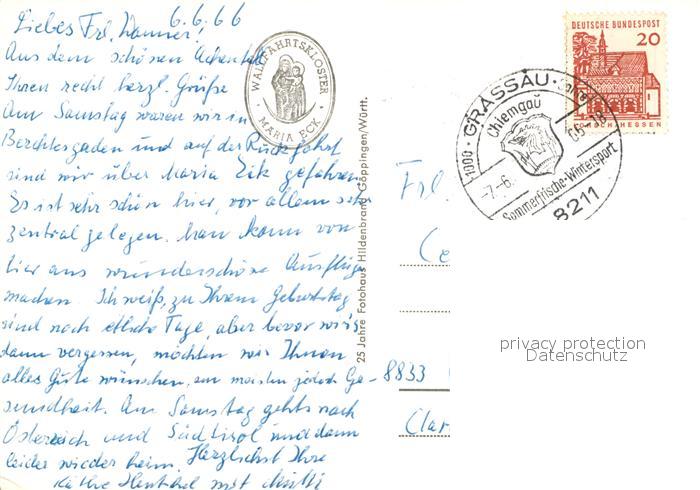 6.6.66
Liebes Frl. Wanner!
Aus dem schönen Achental
Ihnen recht herzl. Grüße
Am Samstag waren wir in
Berchtesgaden und auf der Rückfahrt
sind wir über Maria Eck gefahren
Es ist sehr schön hier, vor allem sehr
zentral gelegen. Man kann von
hier aus wunderschöne Ausflüge
machen. Ich weiß, zu Ihrem Geburtstag
sind noch etliche Tage, aber bevor wir's
dann vergessen, möchten wir Ihnen
alles Gute wünschen, am meisten jedoch Ge-
sundheit. Am Samstag gehts nach
Österreich und Südtirol und dann
leider wieder heim. Herzlichst Ihre
Käthe Henthel mit Mutti
WALLFAHRTSKLOSTER
· MARIA ECK ·
25 Jahre Fotohaus Hildenbrand Göppingen/Württ.
DEUTSCHE BUNDESPOST
20
LORSCH/HESSEN
1000 · GRASSAU · Jahre
Chiemgau
-7.-6.
66-18
Sommerfrische-Wintersport
8211
Frl.
Ce
8833
Clar
privacy protection
Datenschutz